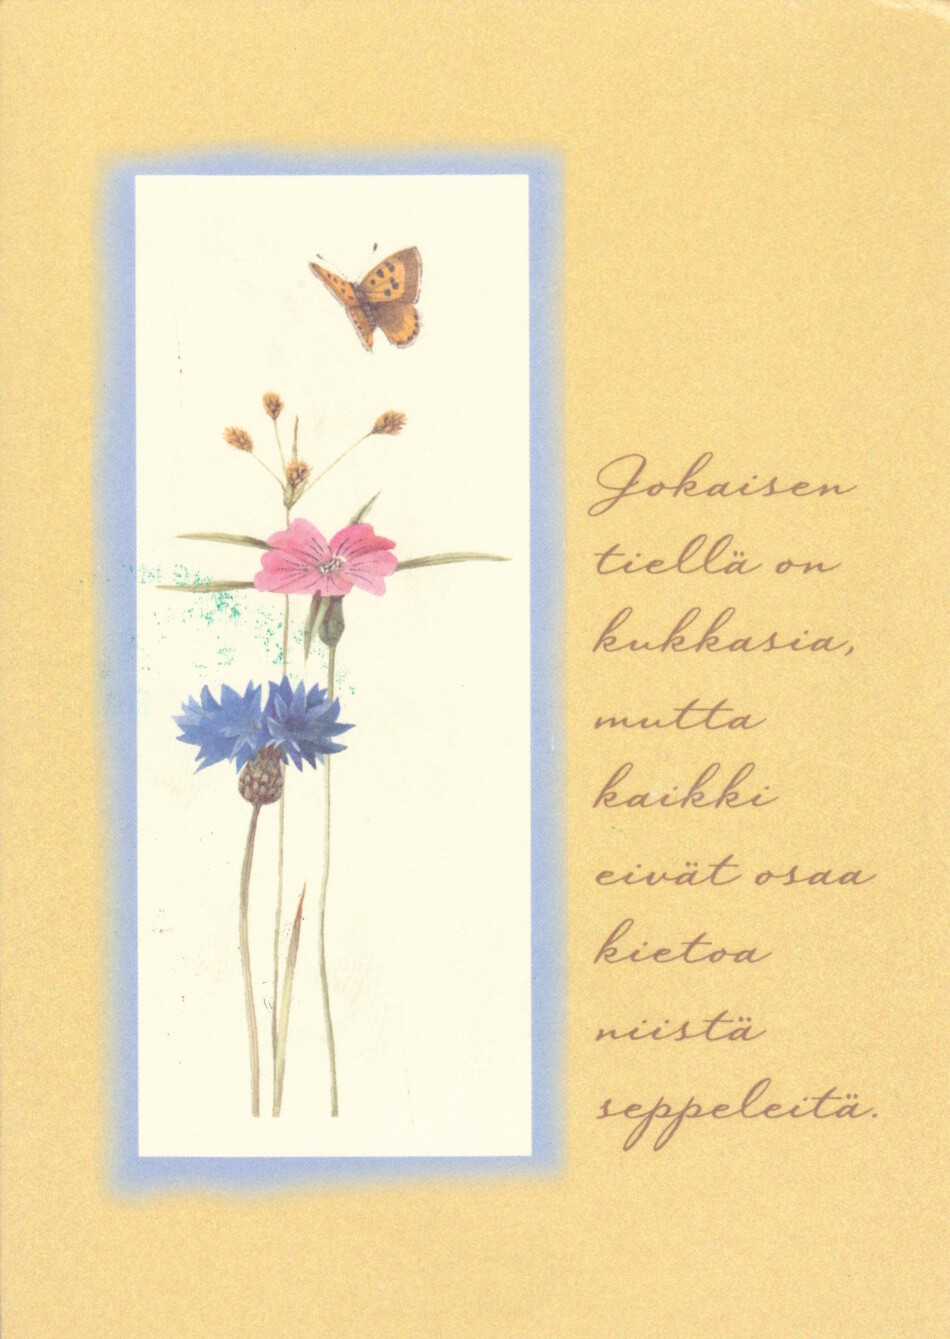 Jokaisen
tiellä on
kukkasia,
mutta
kaikki
eivät osaa
kietoa
niistä
seppeleitä.